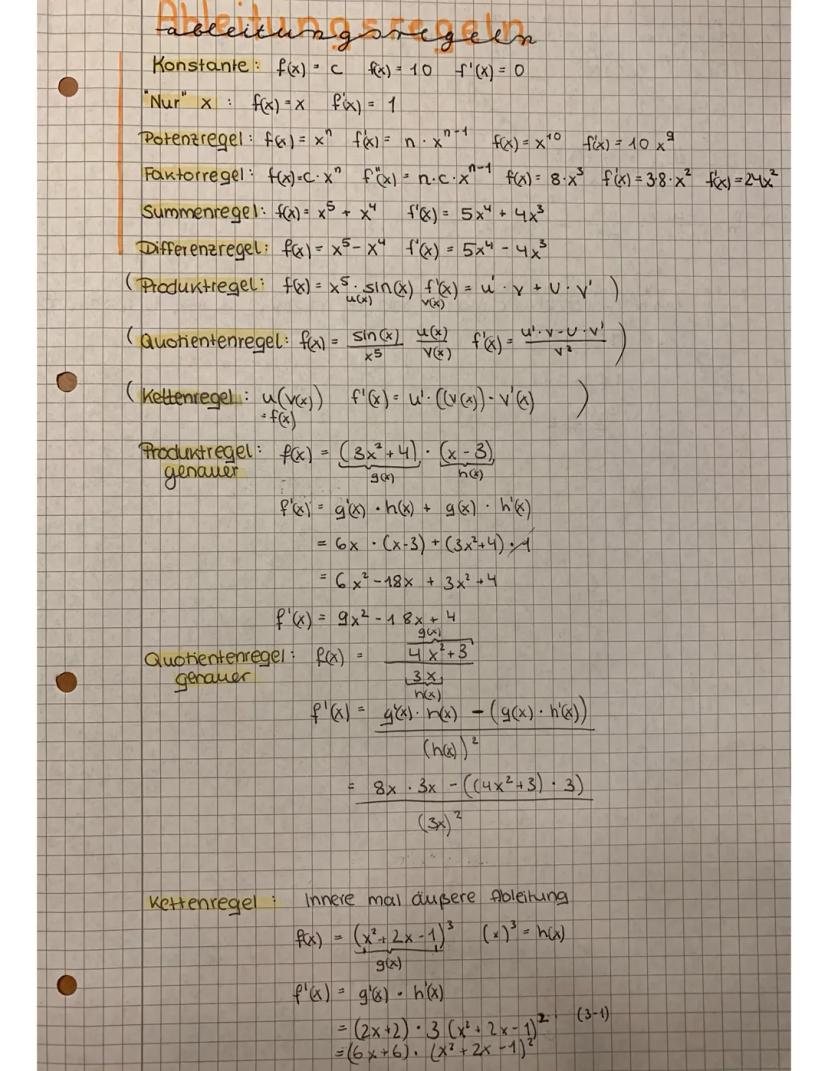 Ableitungsregeln
ableitungsregeln
Konstante: f(x) = c f(x) = 10 f'(x) = 0
"Nur" x : f(x) = x f'(x) = 1
Potenzregel: f(x) = xⁿ f'(x) = n · xⁿ⁻¹ f(x) = x¹⁰ f'(x) = 10 x⁹
Faktorregel: f(x)=c·xⁿ f'(x) = n·c·xⁿ⁻¹ f(x) = 8·x³ f'(x) = 3·8·x² f'(x) = 24x²
Summenregel: f(x) = x⁵ + x⁴ f'(x) = 5x⁴ + 4x³
Differenzregel: f(x) = x⁵ - x⁴ f'(x) = 5x⁴ - 4x³
(Produktregel: f(x) = x⁵ · sin(x) f'(x) = u' · v + u · v' )
u(x) v(x)
(Quotientenregel: f(x) = sin(x)/x⁵ u(x)/v(x) f'(x) = u'·v-u·v'/v² )
(Kettenregel: u(v(x)) f'(x) = u'·((v(x))·v'(x) )
=f(x)
Produktregel: f(x) = (3x²+4) · (x-3)
genauer g(x) h(x)
f'(x) = g'(x) · h(x) + g(x) · h'(x)
= 6x · (x-3) + (3x²+4) · 1
= 6x² - 18x + 3x² + 4
f'(x) = 9x² - 18x + 4
g(x)
Quotientenregel: f(x) = 4x²+3
genauer 3x
h(x)
f'(x) = g'(x) · h(x) - (g(x) · h'(x))
(h(x))²
= 8x · 3x - ((4x²+3) · 3)
(3x)²
Kettenregel: Innere mal äußere Ableitung
f(x) = (x²+2x-1)³ (x)³ = h(x)
g(x)
f'(x) = g'(x) · h'(x)
= (2x+2) · 3 (x²+2x-1)² (3-1)
= (6x+6) · (x²+2x-1)²